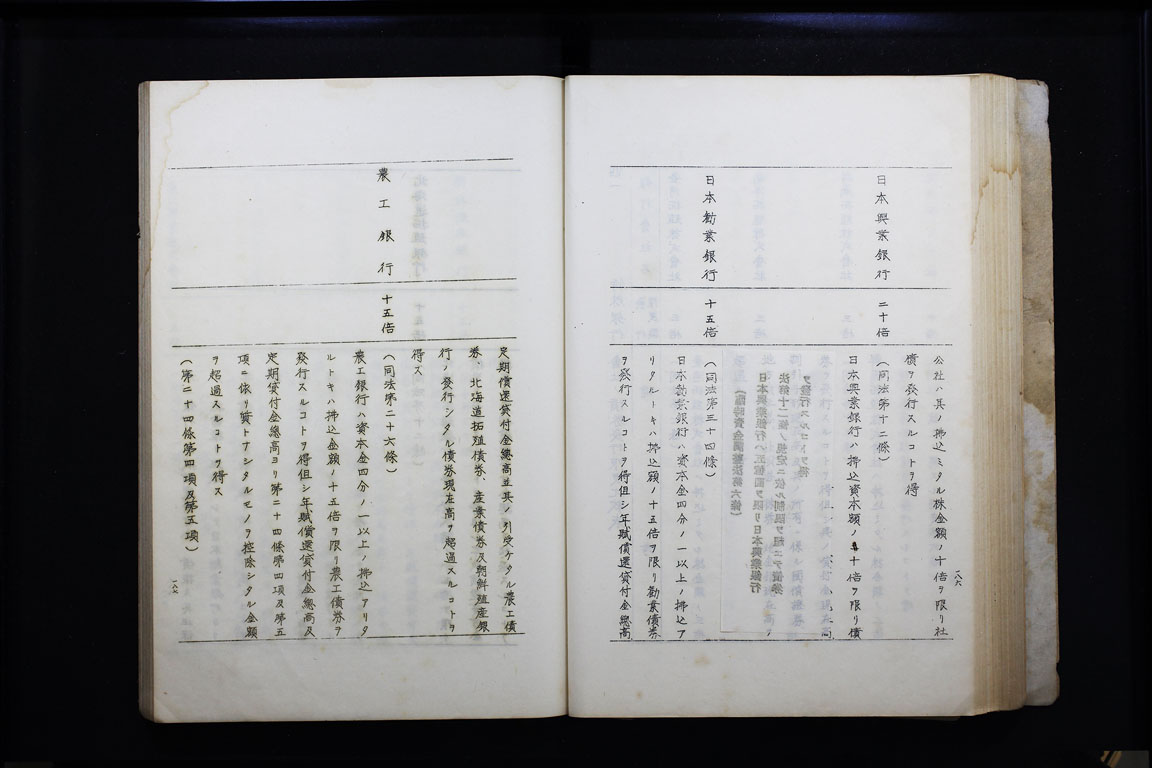 公社ハ其ノ拂込ミタル株金額ノ十倍ヲ限リ社
債ヲ發行スルコトヲ得
日本興業銀行
二十倍
(同法第十二條)
日本興業銀行ハ拂込資本額ノ
十倍ヲ限リ債
日本勸業銀行
十五倍
(同法第三十四條)
日本勸業銀行ハ資本金四分ノ一以上ノ拂込ア
リタルトキハ拂込額ノ十五倍ヲ限リ勸業債券
ヲ發行スルコトヲ得但シ年賦償還貸付金總高
一八六
定期償還貸付金總高並其ノ引受ケタル農工債
券、北海道拓殖債券、産業債券及朝鮮殖産銀
行ノ發行シタル債券現在高ヲ超過スルコトヲ
得ス
農工銀行
十五倍
(同法第二十六條)
農工銀行ハ資本金四分ノ一以上ノ拂込アリタ
ルトキハ拂込金額ノ十五倍ヲ限リ農工債券ヲ
發行スルコトヲ得但シ年賦償還貸付金總高及
定期貸付金總高ヨリ第二十四條第四項及第五
項ニ依リ貸付アシタルモノヲ控除シタル金額
ヲ超過スルコトヲ得ス
(第二十四條第四項及第五項)